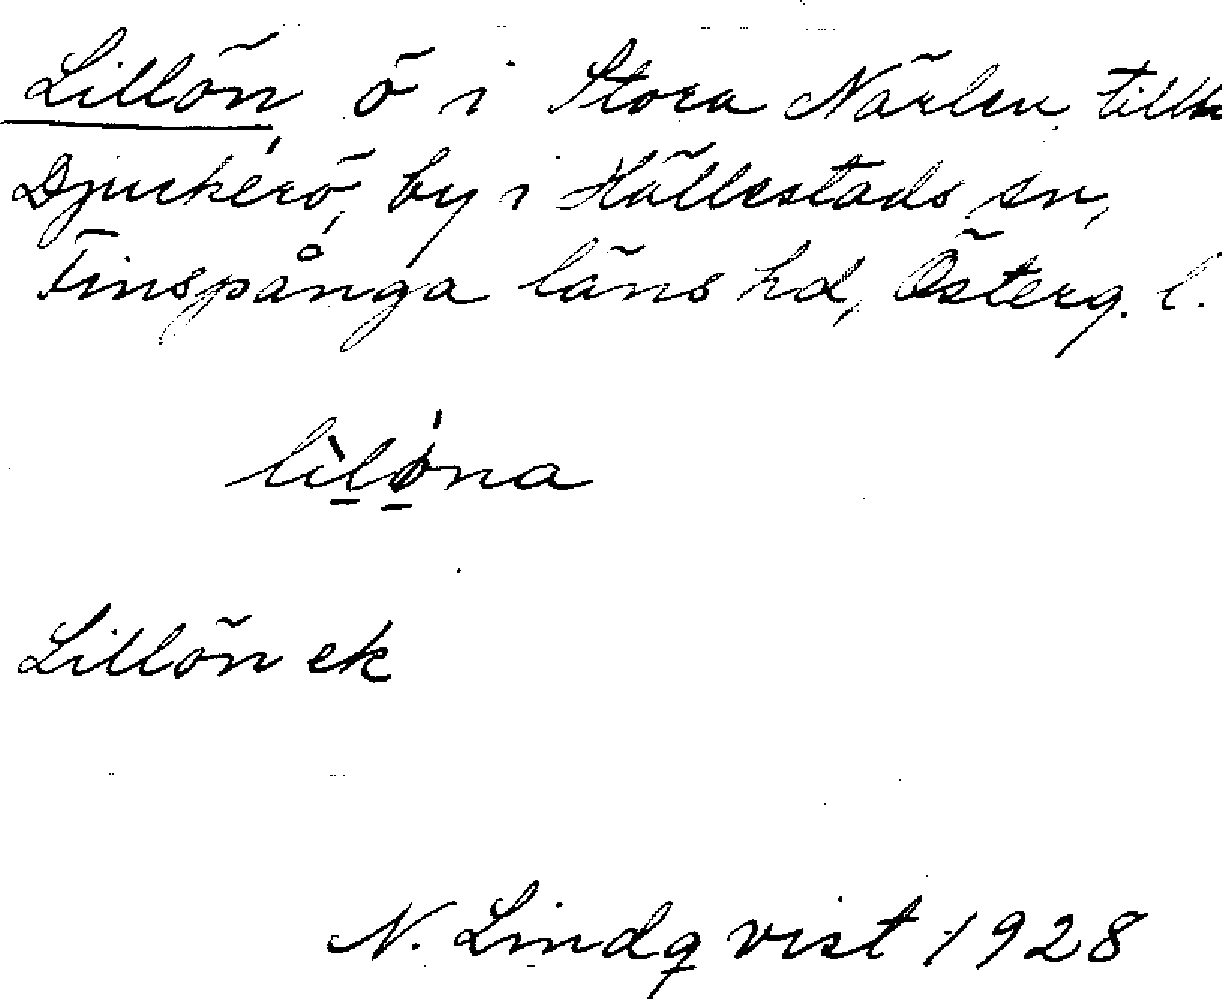 Lillön, ö i Stora Närlen, tillh
Djurkerö, by i Hällestads sn,
Finspånga läns hd, Österg. l.
lìlǿna
Lillön ek
N. Lindqvist 1928